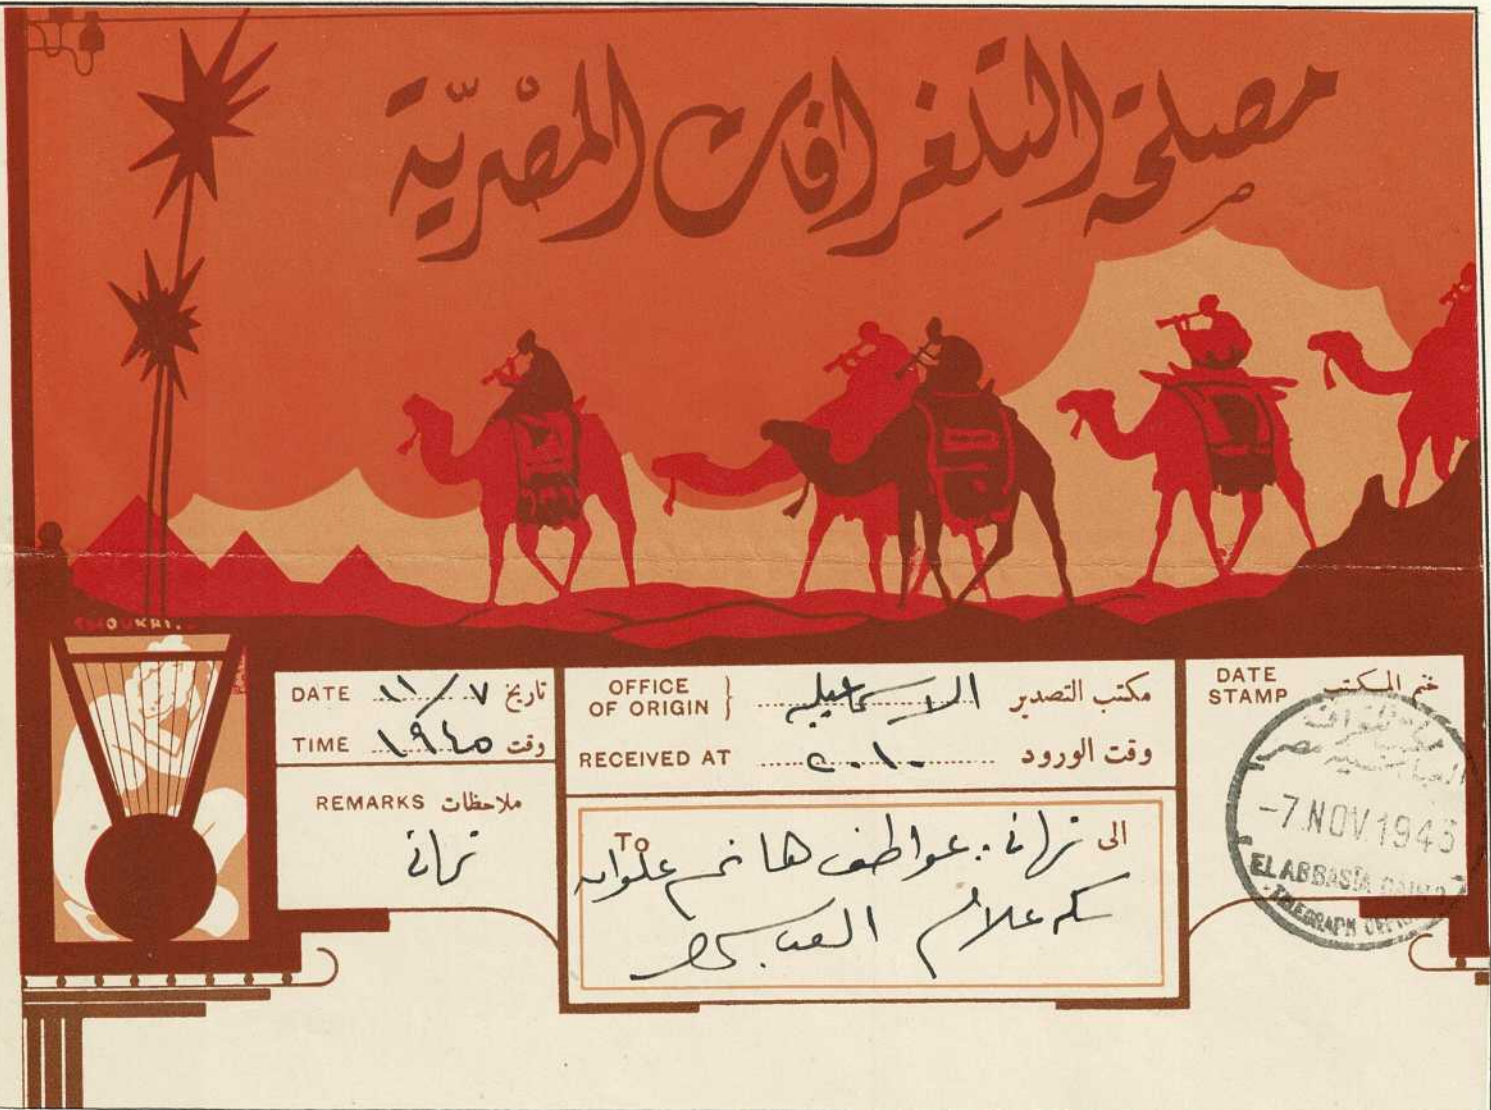 مصلحة التلغرافات المصرية
DATE ٧/١١ تاريخ
TIME ١٩٤٥ وقت
REMARKS ملاحظات
تهاني
OFFICE OF ORIGIN } الاسماعيلية مكتب التصدير
RECEIVED AT وقت الورود
TO الى تهاني: عواطف هانم علوان
علام العباسية
DATE STAMP ختم المكتب
مكتب تلغراف
العباسية مصر
-7 NOV 1945
EL ABBASIA CAIRO
TELEGRAPH OFFICE